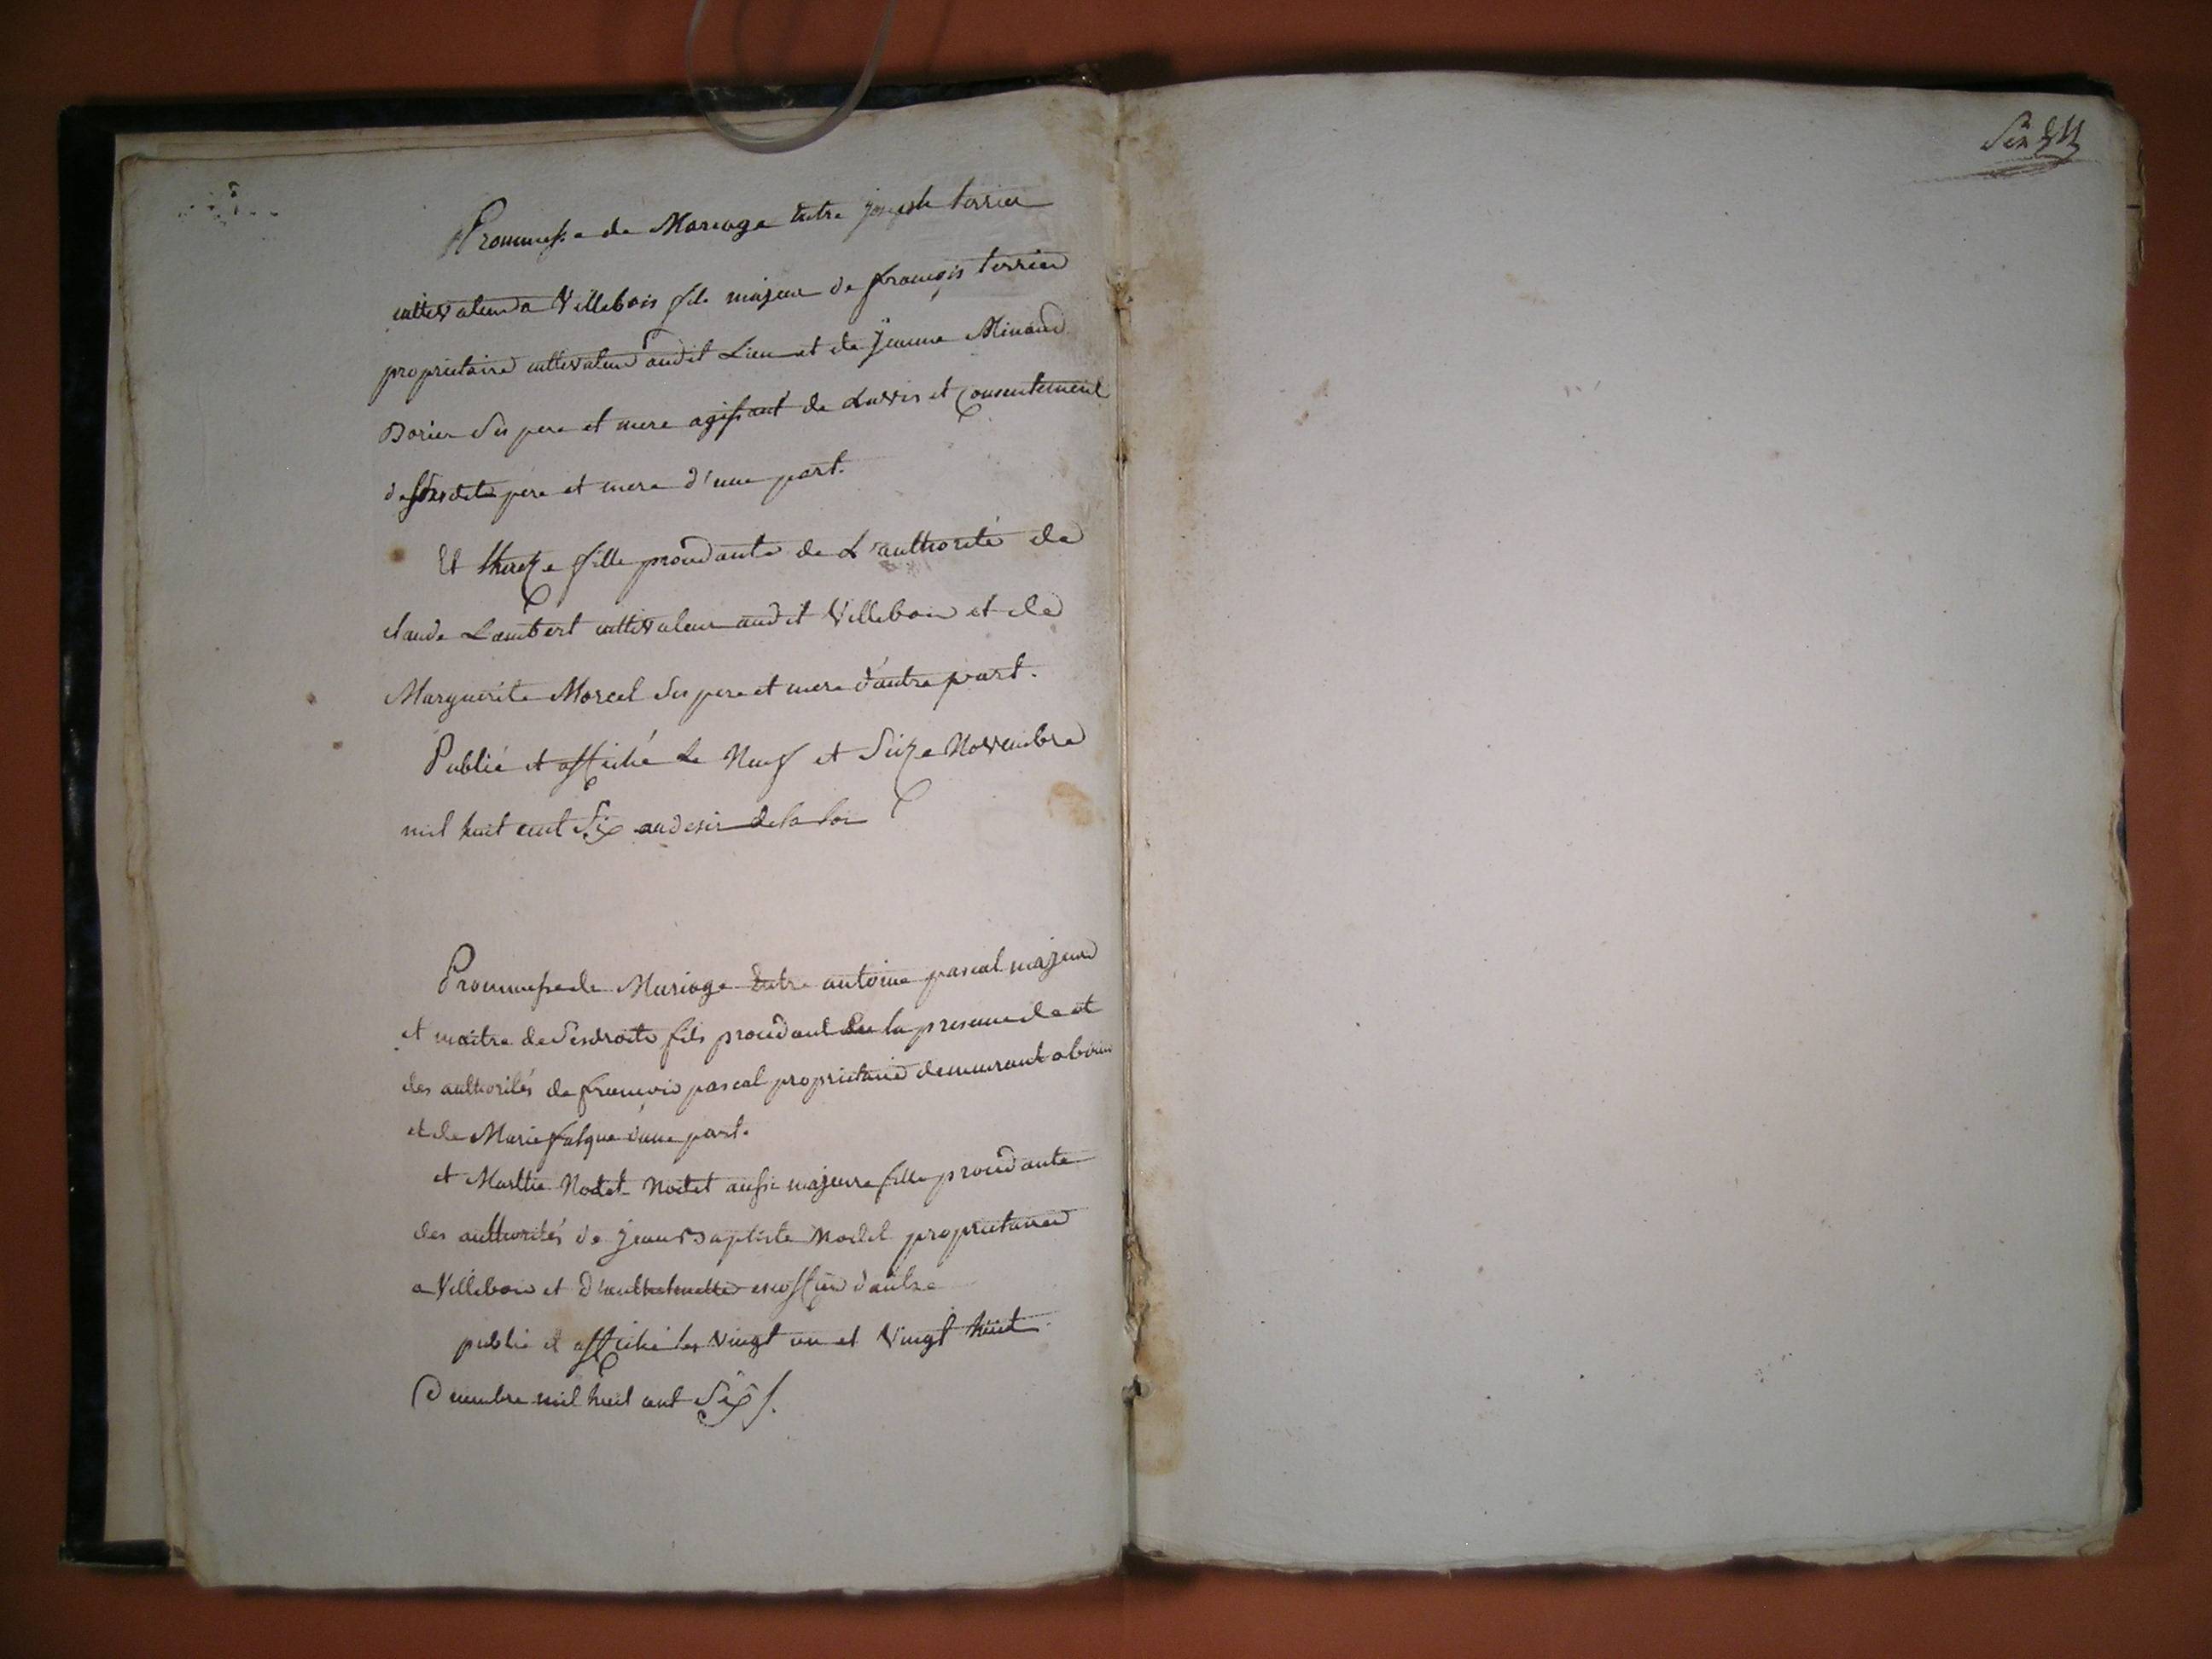 Prommesse de Mariage Entre joseph terrier
cultivateur a Villebois fils majeur de françois terrier
proprietaire cultivateur audit Lieu et de jeanne Minand
Borier Ses pere et mere agissant de Lavvis et Consentement
de sesdits pere et mere d'une part.
Et thereze fille procedante de L'authorité de
claude Lambert cultivateur audit Villebois et de
Marguerite Morcel Ses pere et mere d'autre part.
Publié et affiché Le Neuf et Seize Novembre
mil huit cent Six au desir de la loi
Prommesse de Mariage Entre antoine pascal majeur
et maitre de Ses droits fils procedant de la presence de et
des authorités de francois pascal proprietaire demeurant a
et de Marie falque d'une part.
et Marthe Nodet Nodet aussi majeure fille procedante
des authorités de jean Baptiste Nodet proprietaire
a Villebois et d'anthelmette d'autre
publié et affiché les vingt un et Vingt huit
Decembre mil huit cent Six /.
Six